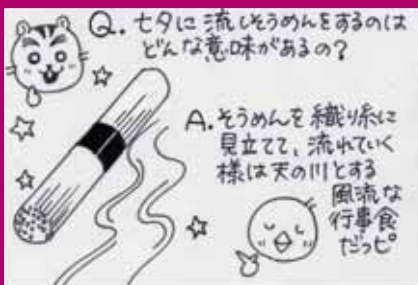 Q. 七夕に流しそうめんをするのは
どんな意味があるの?
A. そうめんを織り糸に
見立てて、流れていく
様は天の川とする
風流な
行事食
だっピ